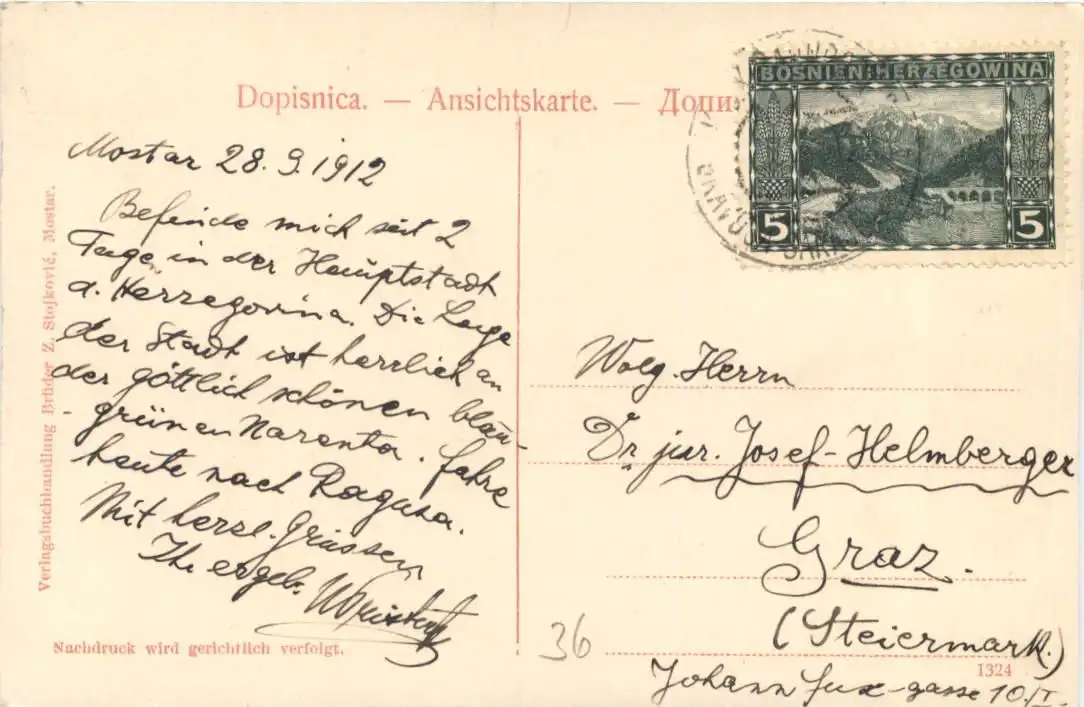 Dopisnica. — Ansichtskarte. — Допи
BOSNIEN-HERZEGOWINA
5 5
Mostar 28.9.1912
Befinde mich seit 2
Tage in der Hauptstadt
d. Herzegovina. Die Lage
der Stadt ist herrlich an
der göttlich schönen blau-
grünen Narenta. Fahre
heute nach Ragusa.
Mit herzl. Grüssen
Ihr ergeb.
Verlagsbuchhandlung Brüder Z. Stojković, Mostar.
Nachdruck wird gerichtlich verfolgt.
Wolg. Herrn
Dr. jur. Josef Helmberger
Graz.
(Steiermark.)
Johann Fux-gasse 10./I.
36
1324